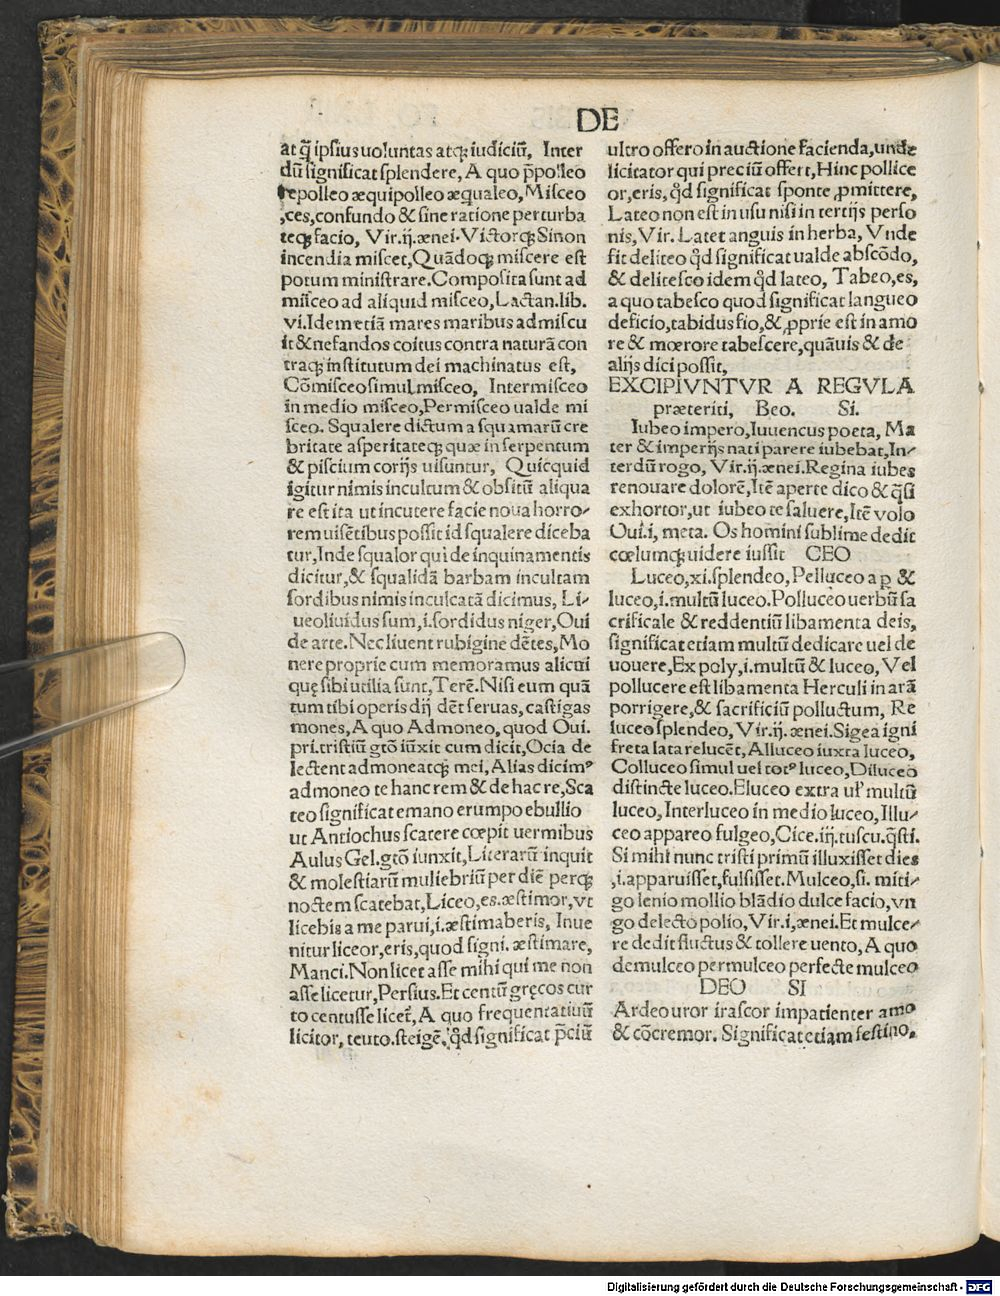 DE
at q̃ ipsius uoluntas atq; iudiciũ, Inter
dũ significat splendere, A quo p̃polleo
repolleo æquipolleo æqualeo, Misceo
,ces, confundo & sine ratione perturba
teq; facio, Vir.ij.ænei. Victorq; Sinon
incendia miscet, Quãdoq; miscere est
potum ministrare. Composita sunt ad
misceo ad aliquid misceo, Lactan. lib.
vi. Idem etiã mares maribus admiscu
it & nefandos coitus contra naturã con
traq; institutum dei machinatus est,
Cõmisceo simul misceo, Intermisceo
in medio misceo, Permisceo ualde mi
sceo. Squalere dictum a squamarũ cre
britate asperitateq; quæ in serpentum
& piscium corijs uisuntur, Quicquid
igitur nimis incultum & obsitũ aliqua
re est ita ut incutere facie noua horro⸗
rem uisẽtibus possit id squalere diceba
tur, Inde squalor qui de inquinamentis
dicitur, & squalidã barbam incultam
sordibus nimis inculcatã dicimus, Li⸗
ueo liuidus sum, i. sordidus niger, Oui
de arte. Nec liuent rubigine dẽtes, Mo
nere proprie cum memoramus alicui
quę sibi utilia sunt, Terẽ. Nisi eum quã
tum tibi operis dij dẽt seruas, castigas
mones, A quo Admoneo, quod Oui.
pri. tristiũ gtõ iũxit cum dicit, Ocia de
lectent admoneatq; mei, Alias dicimꝰ
admoneo te hanc rem & de hac re, Sca
teo significat emano erumpo ebullio
ut Antiochus scatere cœpit uermibus
Aulus Gel. gtõ iunxit, Literarũ inquit
& molestiarũ muliebriũ per diẽ perq;
noctem scatebat, Liceo, es. æstimor, vt
licebis a me parui, i. æstimaberis, Inue
nitur liceor, eris, quod signi. æstimare,
Manci. Non licet asse mihi qui me non
asse licetur, Persius. Et centũ gręcos cur
to centusse licet̃, A quo frequentatiuũ
licitor, teuto. steigẽ, q̃d significat p̃ciũ
ultro offero in auctione facienda, unde
licitator qui preciũ offert, Hinc pollice
or, eris, q̃d significat sponte ꝓmittere,
Lateo non est in usu nisi in tertijs perso
nis, Vir. Latet anguis in herba, Vnde
fit deliteo q̃d significat ualde abscõdo,
& delitesco idem q̃d lateo, Tabeo, es,
a quo tabesco quod significat langueo
deficio, tabidus fio, & ꝓprie est in amo
re & mœrore tabescere, quãuis & de
alijs dici possit,
EXCIPIVNTVR A REGVLA
præteriti, Beo. Si.
Iubeo impero, Iuuencus poeta, Ma
ter & imperijs nati parere iubebat, In⸗
terdũ rogo, Vir.ij.ænei. Regina iubes
renouare dolorẽ, Itẽ aperte dico & q̃si
exhortor, ut iubeo te saluere, Itẽ volo
Oui. i, meta. Os homini sublime dedit
cœlumq; uidere iussit CEO
Luceo, xi. splendeo, Pelluceo a ꝑ &
luceo, i. multũ luceo. Polluceo uerbũ sa
crificale & reddentiũ libamenta deis,
significat etiam multũ dedicare uel de
uouere, Ex poly, i. multũ & luceo, Vel
pollucere est libamenta Herculi in arã
porrigere, & sacrificiũ polluctum, Re
luceo splendeo, Vir.ij. ænei. Sigea igni
freta lata relucẽt, Alluceo iuxta luceo,
Colluceo simul uel totꝰ luceo, Diluceo
distincte luceo. Eluceo extra ul̃ multũ
luceo, Interluceo in medio luceo, Illu⸗
ceo appareo fulgeo, Cice. iij. tuscu. q̃sti.
Si mihi nunc tristi primũ illuxisset dies
,i. apparuisset, fulsisset. Mulceo, si. miti⸗
go lenio mollio blãdio dulce facio, vn
go delecto polio, Vir. i, ænei. Et mulce⸗
re dedit fluctus & tollere uento, A quo
demulceo permulceo perfecte mulceo
DEO SI
Ardeo uror irascor impatienter amo
& cõcremor. Significat etiam festino.
Digitalisierung gefördert durch die Deutsche Forschungsgemeinschaft - DFG